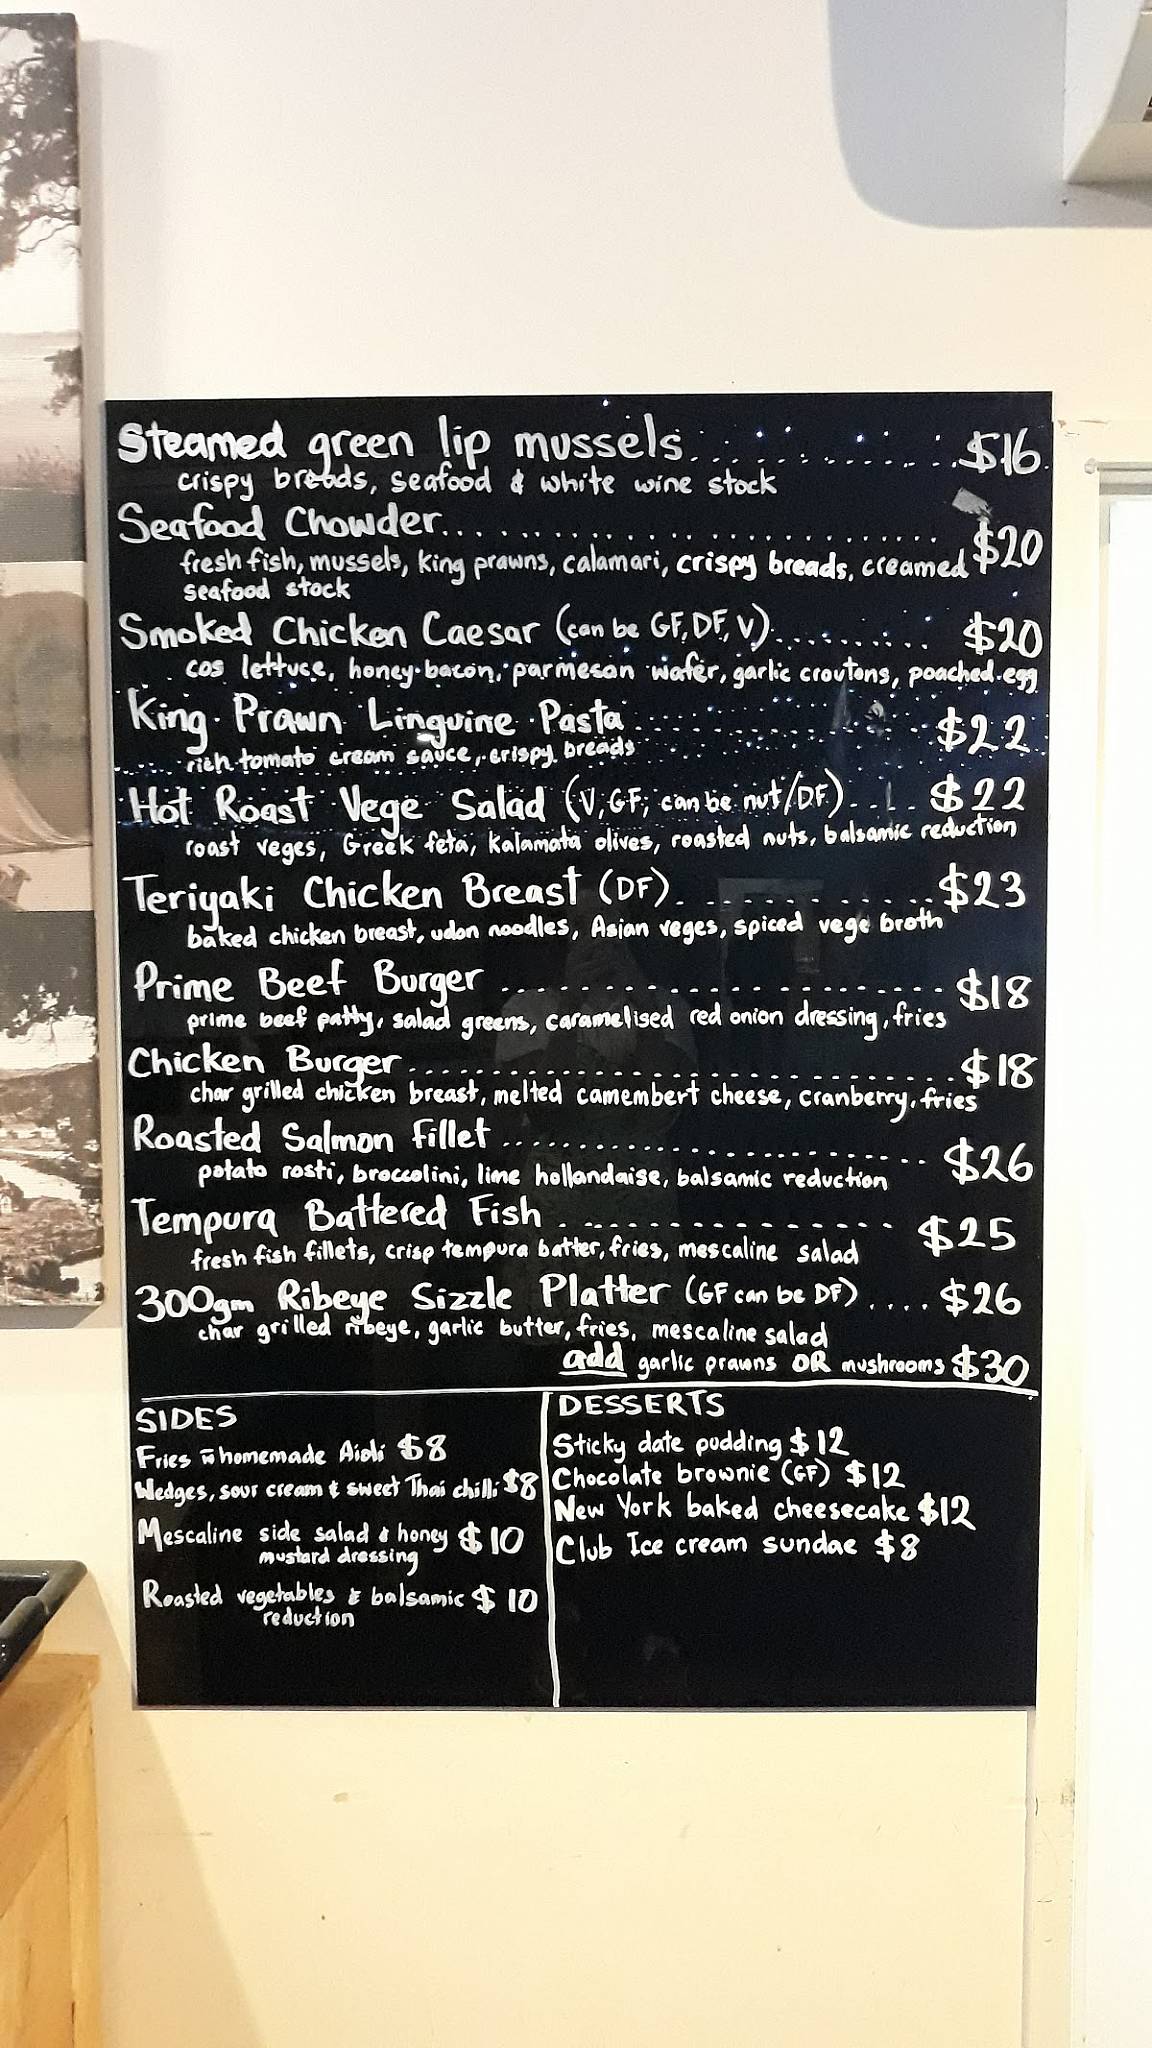 Steamed green lip mussels.................$16
crispy breads, seafood & white wine stock
Seafood Chowder.......................... $20
fresh fish, mussels, king prawns, calamari, crispy breads, creamed
seafood stock
Smoked Chicken Caesar (can be GF, DF, V).......... $20
cos lettuce, honey bacon, parmesan wafer, garlic croutons, poached egg
King Prawn Linguine Pasta................... $22
rich tomato cream sauce, crispy breads
Hot Roast Vege Salad (V, GF; can be nut/DF).... $22
roast veges, Greek feta, kalamata olives, roasted nuts, balsamic reduction
Teriyaki Chicken Breast (DF)............. $23
baked chicken breast, udon noodles, Asian veges, spiced vege broth
Prime Beef Burger ........................ $18
prime beef patty, salad greens, caramelised red onion dressing, fries
Chicken Burger............................. $18
char grilled chicken breast, melted camembert cheese, cranberry, fries
Roasted Salmon fillet ......................... $26
potato rosti, broccolini, lime hollandaise, balsamic reduction
Tempura Battered Fish .................. $25
fresh fish fillets, crisp tempura batter, fries, mescaline salad
300gm Ribeye Sizzle Platter (GF can be DF) .... $26
char grilled ribeye, garlic butter, fries, mescaline salad
add garlic prawns OR mushrooms $30
SIDES
Fries w homemade Aioli $8
Wedges, sour cream & sweet Thai chilli $8
Mescaline side salad & honey $10
mustard dressing
Roasted vegetables & balsamic $10
reduction
DESSERTS
Sticky date pudding $12
Chocolate brownie (GF) $12
New York baked cheesecake $12
Club Ice cream sundae $8